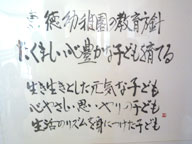 徳幼稚園の教育方針
たくましい心豊かな子どもを育てる
生き生きとした元気な子ども
心やさしい思いやりの子ども
生活のリズムを身につけた子ども